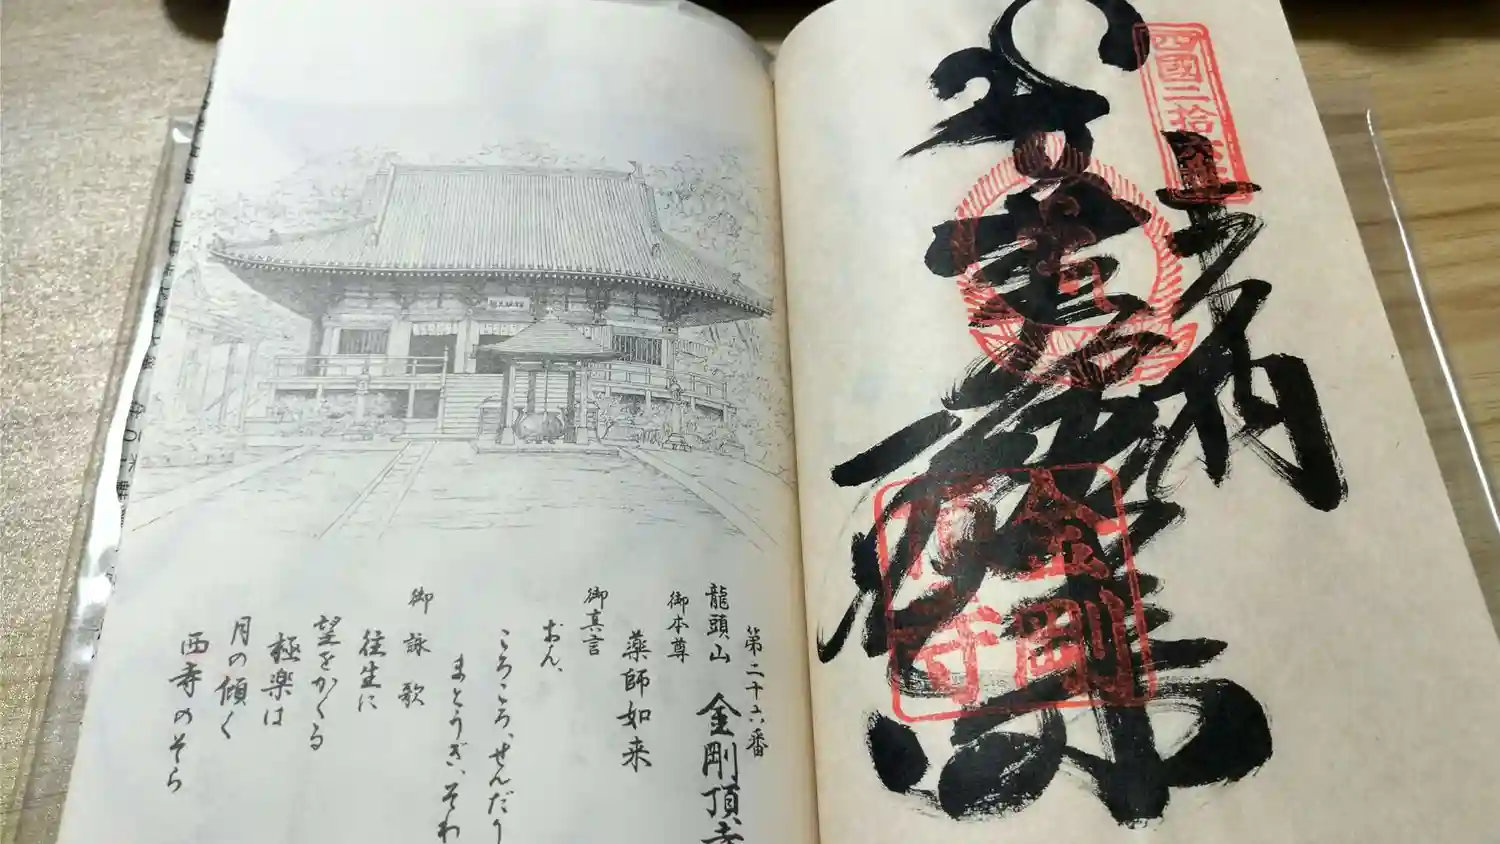 第二十六番
龍頭山 金剛頂寺
御本尊
薬師如来
御真言
おん、
ころころ、せんだり
まとうぎ、そわ
御詠歌
往生に
望をかくる
極楽は
月の傾く
西寺のそら
四國二拾六番
奉納
金剛
頂寺